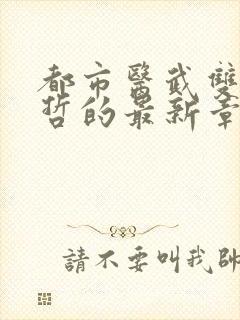 都市醫武雙
哲的最新章
請不要叫我帥